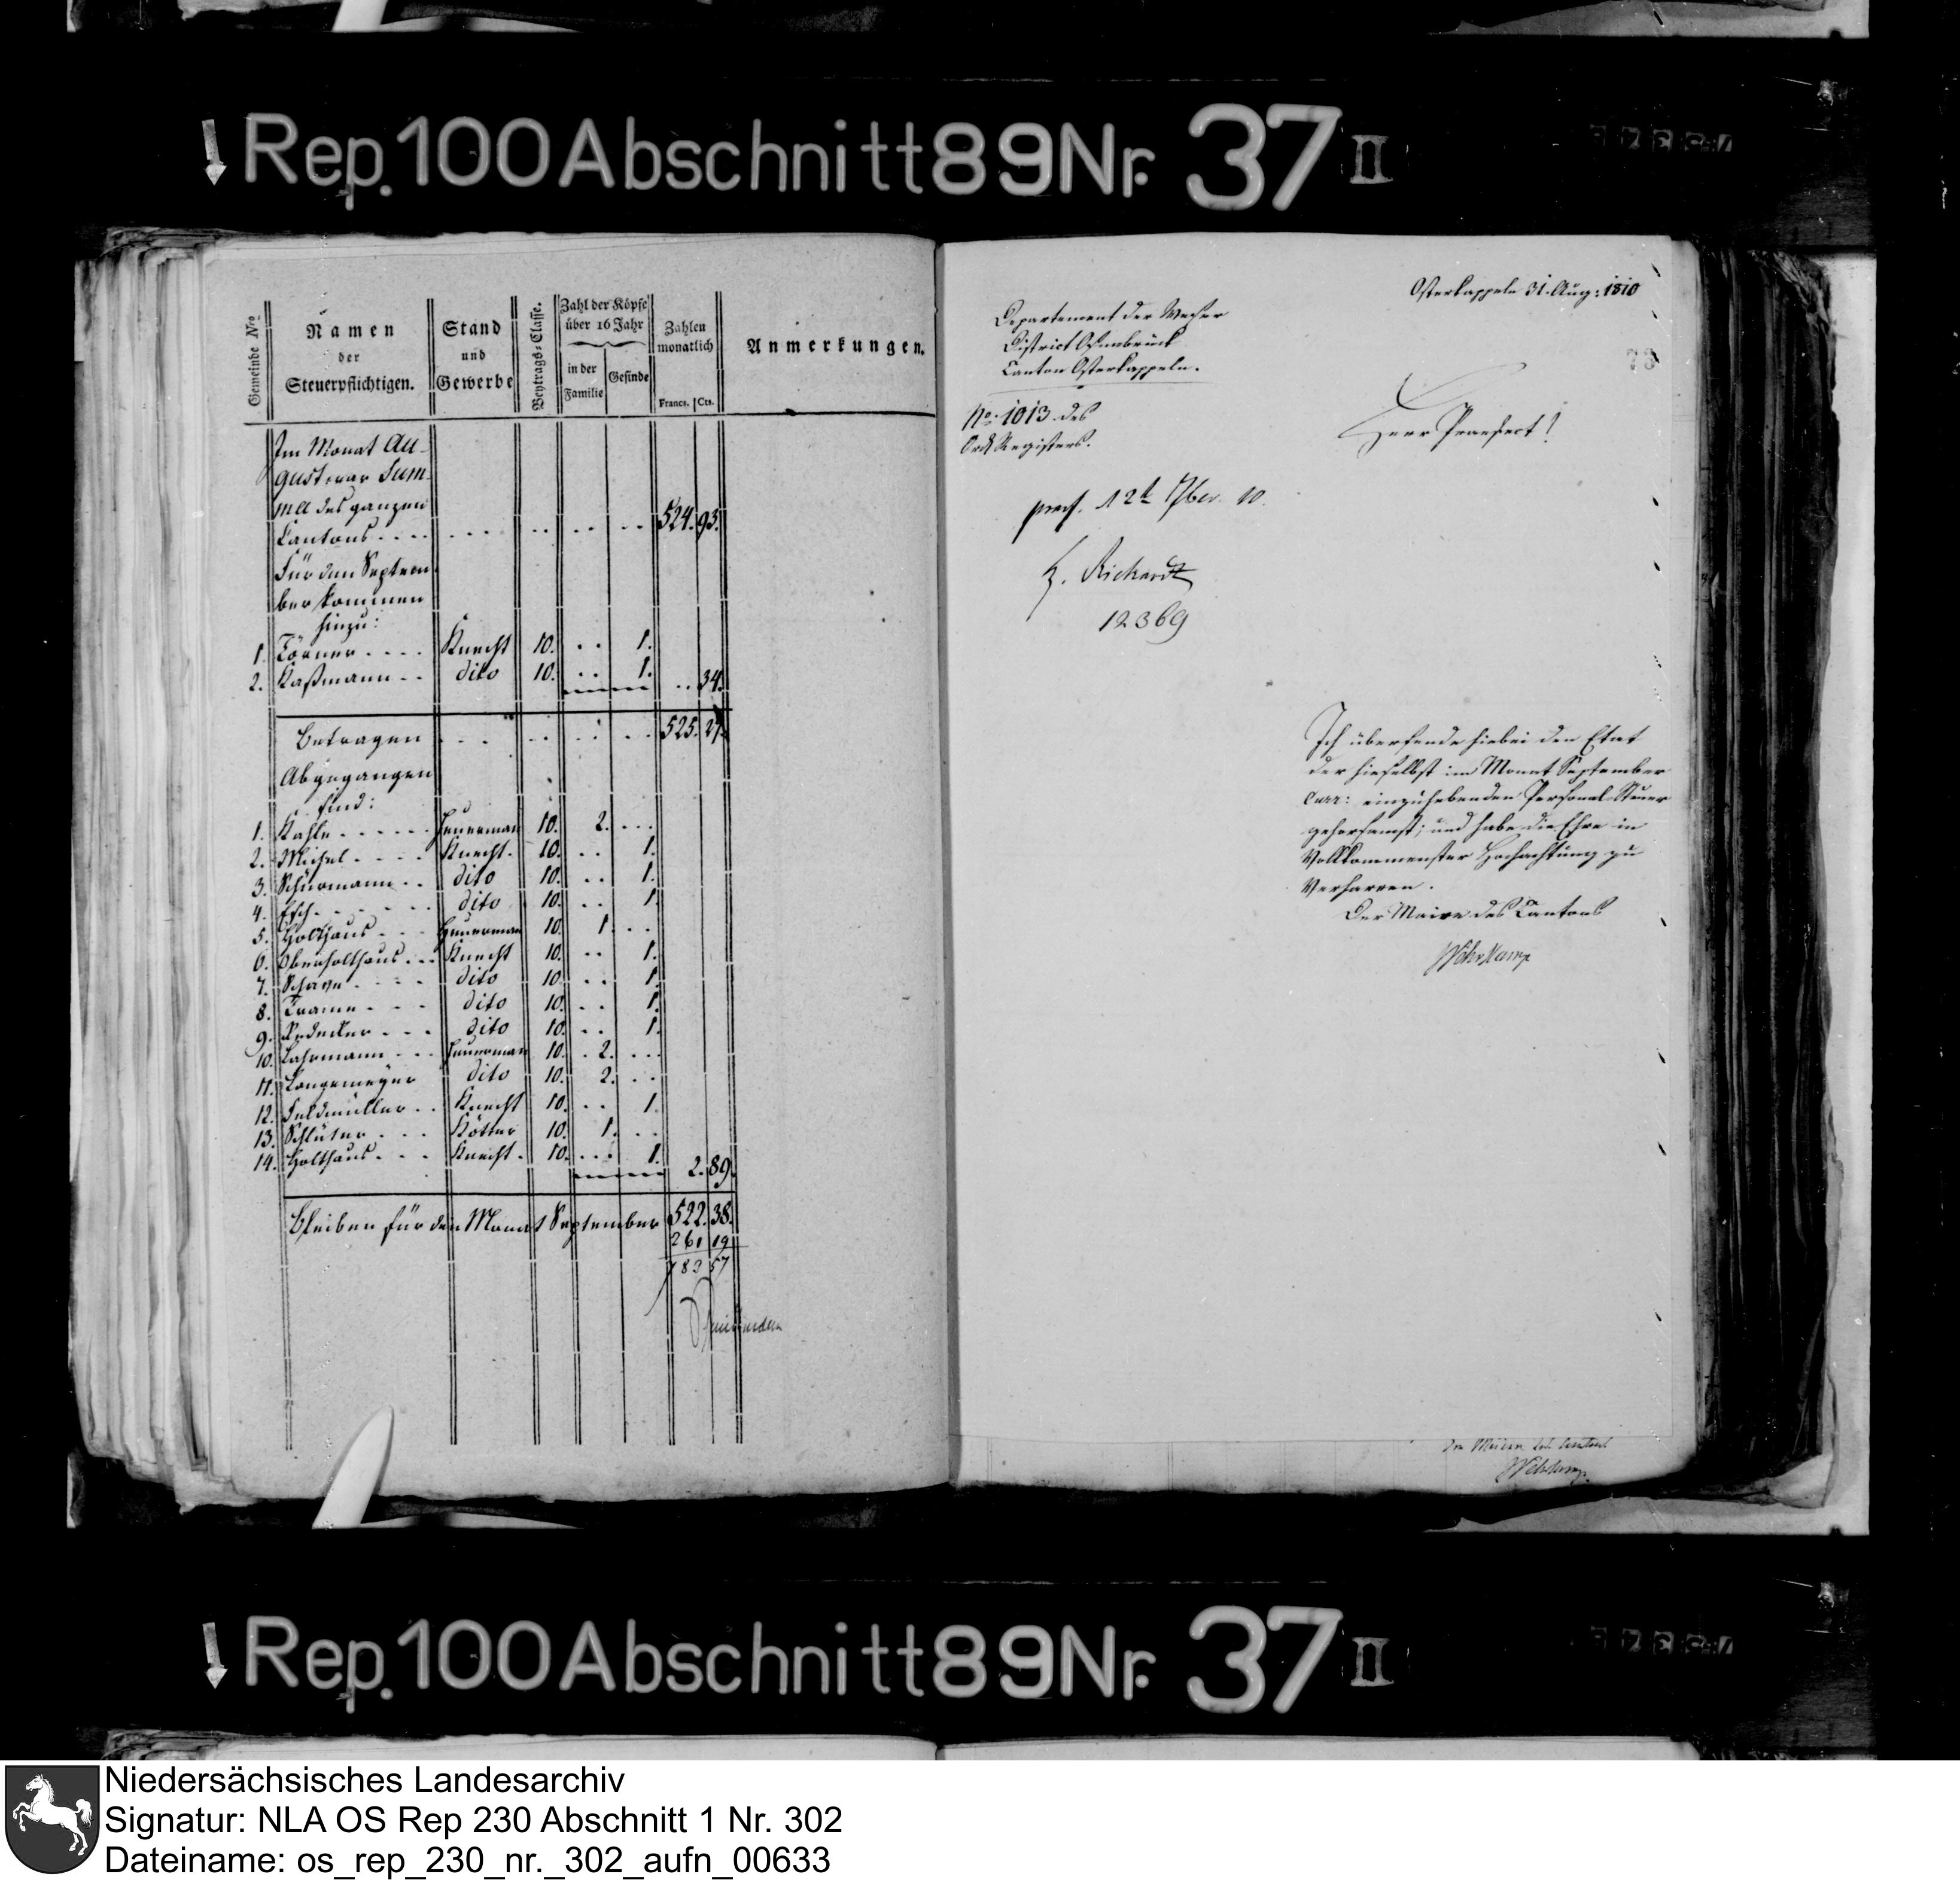 Rep. 100 Abschnitt 89 Nr. 37 II
Gemeinde Nro
Namen der Steuerpflichtigen.
Stand und Gewerbe
Beytrags-Classe.
Zahl der Köpfe über 16 Jahr
in der Familie
Gesinde
Zahlen monatlich
Francs. Cts.
Anmerkungen.
Im Monat Au-
gust war Sum-
ma des ganzen
Cantons . . . . 524. 93.
Für den Septem
ber kommen
hinzu:
1. Törner . . . . Knecht 10. . . 1.
2. Kaßmann . . dito 10. . . 1. . . 34.
Betragen . . . 525. 27.
Abgegangen
sind:
1. Kahle . . . . . Heuerman 10. 2. . . .
2. Michel . . . . Knecht. 10. . . 1.
3. Schürmann . . dito 10. . . 1.
4. Esch . . . . . dito 10. . . 1.
5. Holthaus . . . Heuerman 10. 1. . .
6. Oberholthaus . . . Knecht 10. . . 1.
7. dito 10. . . 1.
8. Trame . . . dito 10. . . 1.
9. Redecker . . . dito 10. . . 1.
10. Lahrmann . . . Heuerman 10. . 2. . . .
11. Langemeyer dito 10. 2. . .
12. Feldmüller . . Knecht 10. . . 1.
13. Schlüter . . . Kötter 10. 1. . .
14. Holthaus . . . Knecht. 10. . . . 1. 2. 89.
Bleiben für den Monat September 522. 38.
261 19
783 57
Osterkappeln 31. Aug: 1810
Departement der Weser
District Osnabrück
Canton Osterkappeln.
No. 1013 des
Registers.
73
Herr Praefect!
praes. 12t 7ber. 10.
H. Richard
12369
Ich übersende hiebei den Etat
der hieselbst im Monat September
curr: einzuhebenden Personal-Steuer
gehorsamst; und habe die Ehre in
Vollkommenster Hochachtung zu
Verharren.
Der Maire des Cantons
Wehrkamp
Der Maire des Cantons
Wehrkamp
Rep. 100 Abschnitt 89 Nr. 37 II
Niedersächsisches Landesarchiv
Signatur: NLA OS Rep 230 Abschnitt 1 Nr. 302
Dateiname: os_rep_230_nr._302_aufn_00633